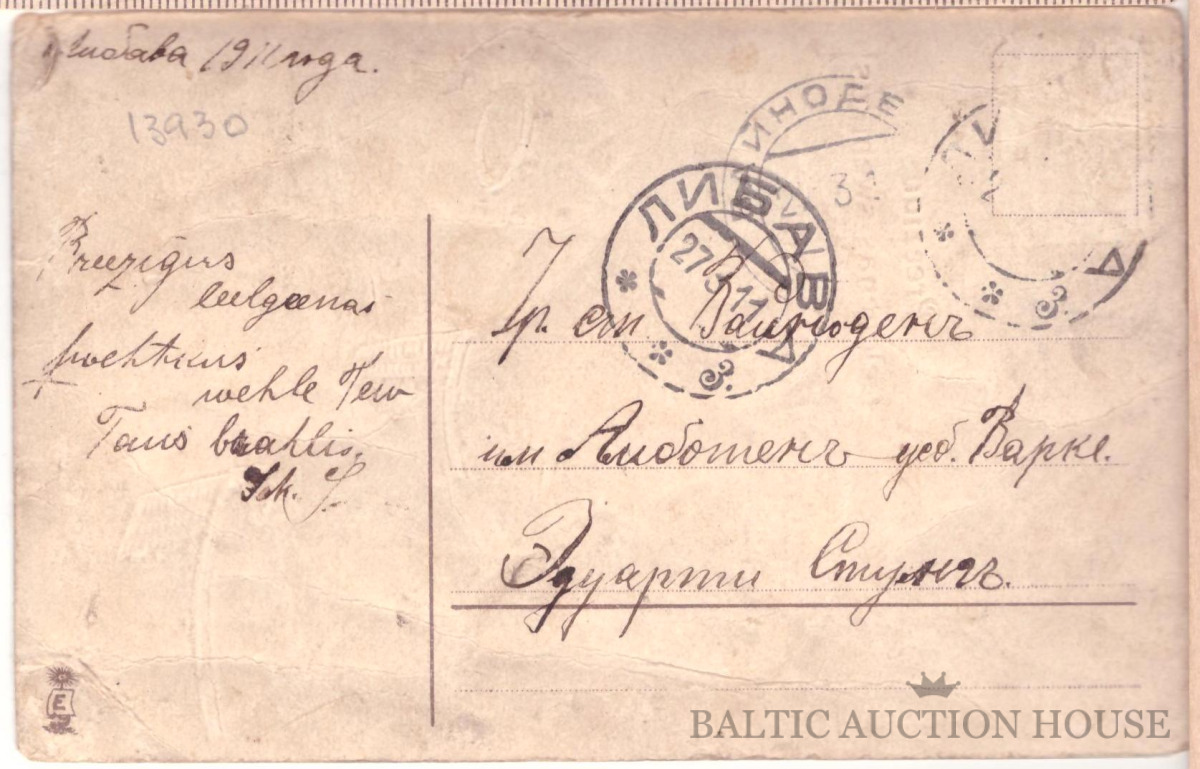 Либава 1911 года.
13930
Preezigus
leelgaenas
swehtkus
wehle Tew
Taws brahlis.
ИНОДЕ
31
ЛИБАВА
27 3 11
3.
3.
Чр. ст. Вайноденъ
им Амботенъ усб. Варке.
Эдуарти
E
BALTIC AUCTION HOUSE